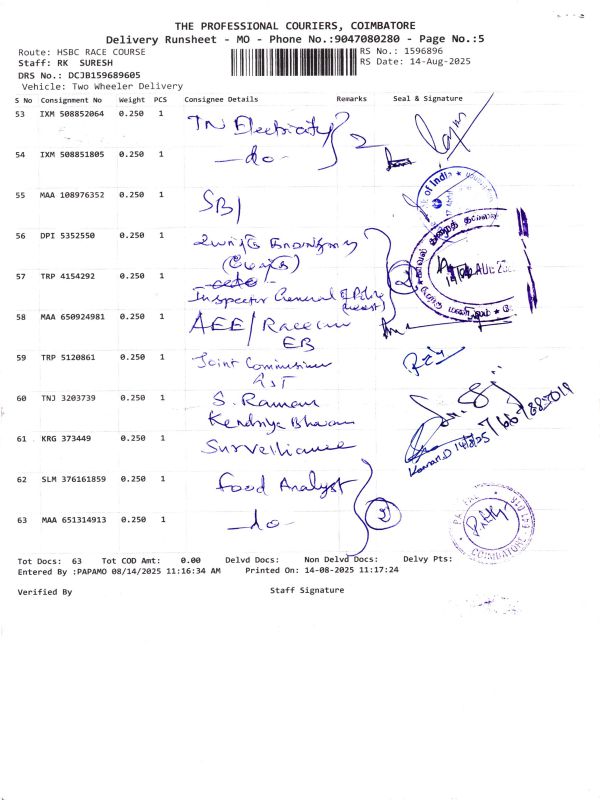 THE PROFESSIONAL COURIERS, COIMBATORE
Delivery Runsheet - MO - Phone No.:9047080280 - Page No.:5
Route: HSBC RACE COURSE
RS No.: 1596896
Staff: RK SURESH
RS Date: 14-Aug-2025
DRS No.: DCJB159689605
Vehicle: Two Wheeler Delivery
S No Consignment No Weight PCS Consignee Details Remarks Seal & Signature
53 IXM 508852064 0.250 1 TN Electricity
2
54 IXM 508851805 0.250 1 -do-
of India
55 MAA 108976352 0.250 1 SBI
56 DPI 5352550 0.250 1
57 TRP 4154292 0.250 1
2
AUG
Inspector General of Police
(west)
58 MAA 650924981 0.250 1 AEE/Racecour
EB
59 TRP 5120861 0.250 1 Joint Commissioner
60 TNJ 3203739 0.250 1 S. Raman
Kendriya Bhavan
61 KRG 373449 0.250 1 Surveillance
14/8/25
62 SLM 376161859 0.250 1 Food Analyst
2
63 MAA 651314913 0.250 1 -do-
COIMBATORE
Tot Docs: 63 Tot COD Amt: 0.00 Delvd Docs: Non Delvd Docs: Delvy Pts:
Entered By :PAPAMO 08/14/2025 11:16:34 AM Printed On: 14-08-2025 11:17:24
Verified By Staff Signature